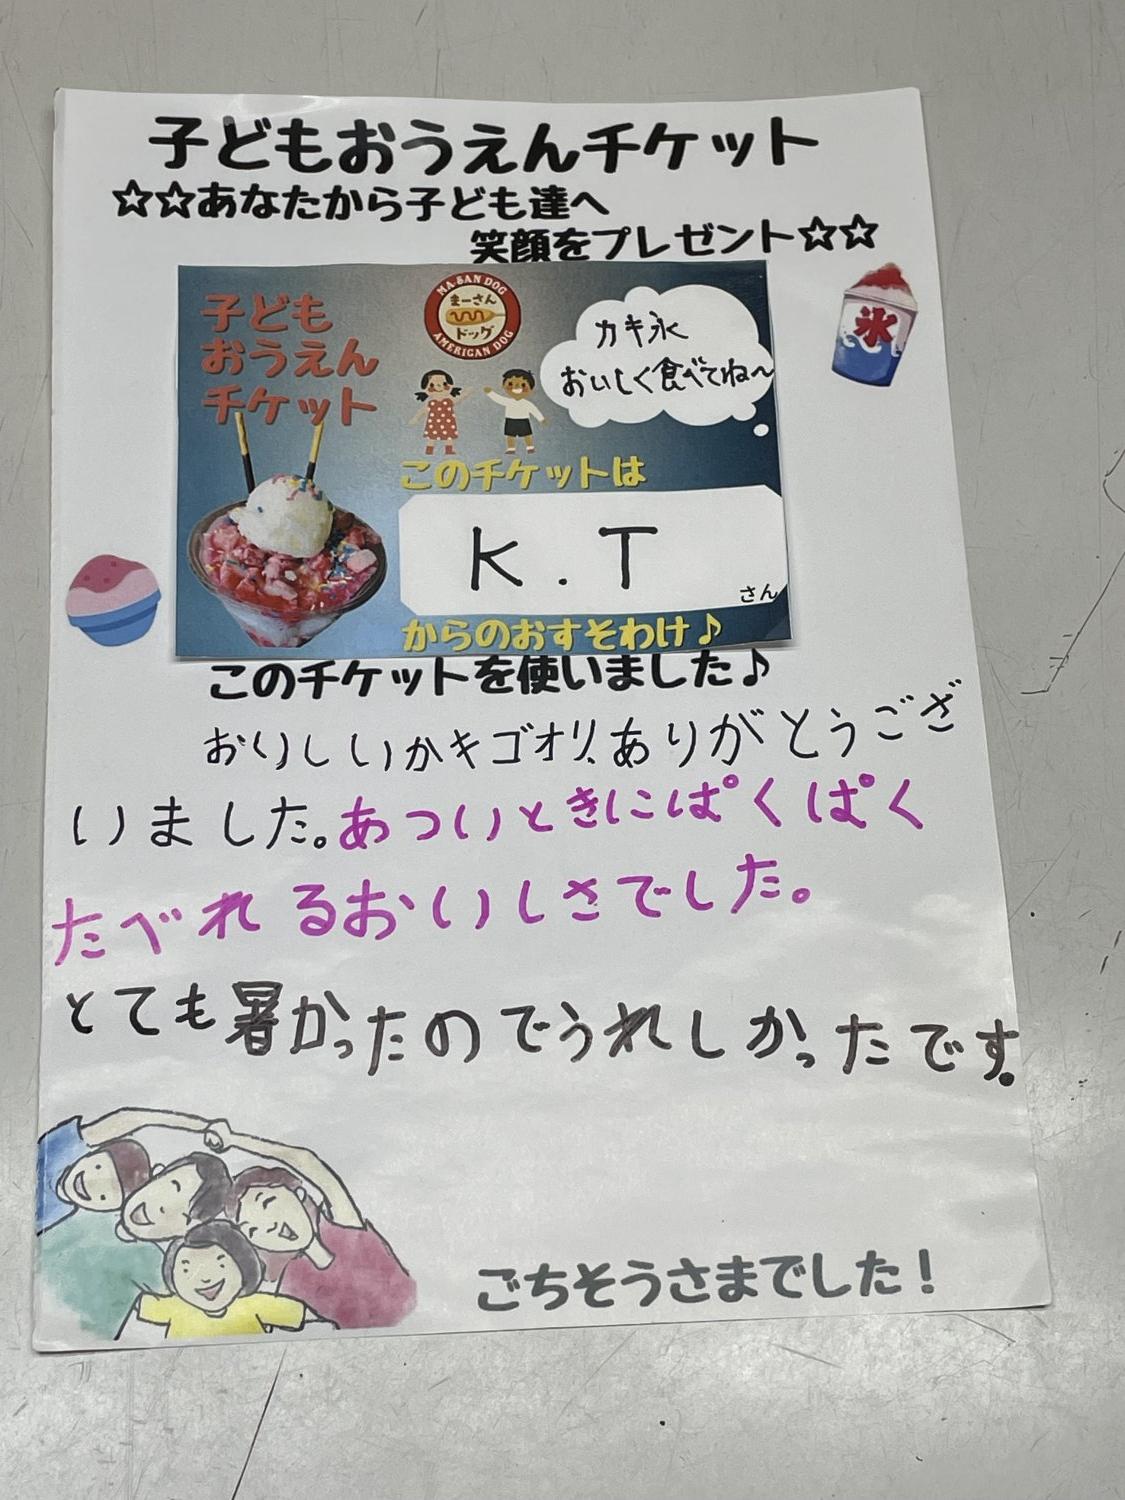 子どもおうえんチケット
☆☆あなたから子ども達へ
笑顔をプレゼント☆☆
氷
子ども
おうえん
チケット
MA-SAN DOG
まーさん
ドッグ
AMERICAN DOG
カキ氷
おいしく食べてね〜
このチケットは
K.T
さん
からのおすそわけ♪
このチケットを使いました♪
おいしいかキゴオリ、ありがとうござ
いました。あついときにぱくぱく
たべれるおいしさでした。
とても暑かったのでうれしかったです。
ごちそうさまでした！